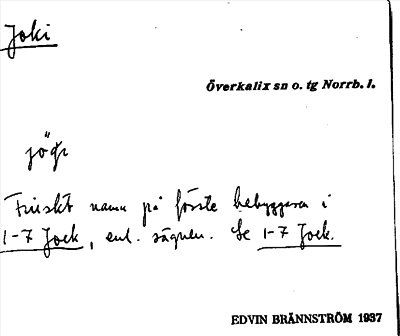 Joki
Överkalix sn o. tg Norrb. l.
Finskt namn på förste bebyggaren i
1-7 Jock, enl. sägnen. Se 1-7 Jock.
EDVIN BRÄNNSTRÖM 1937